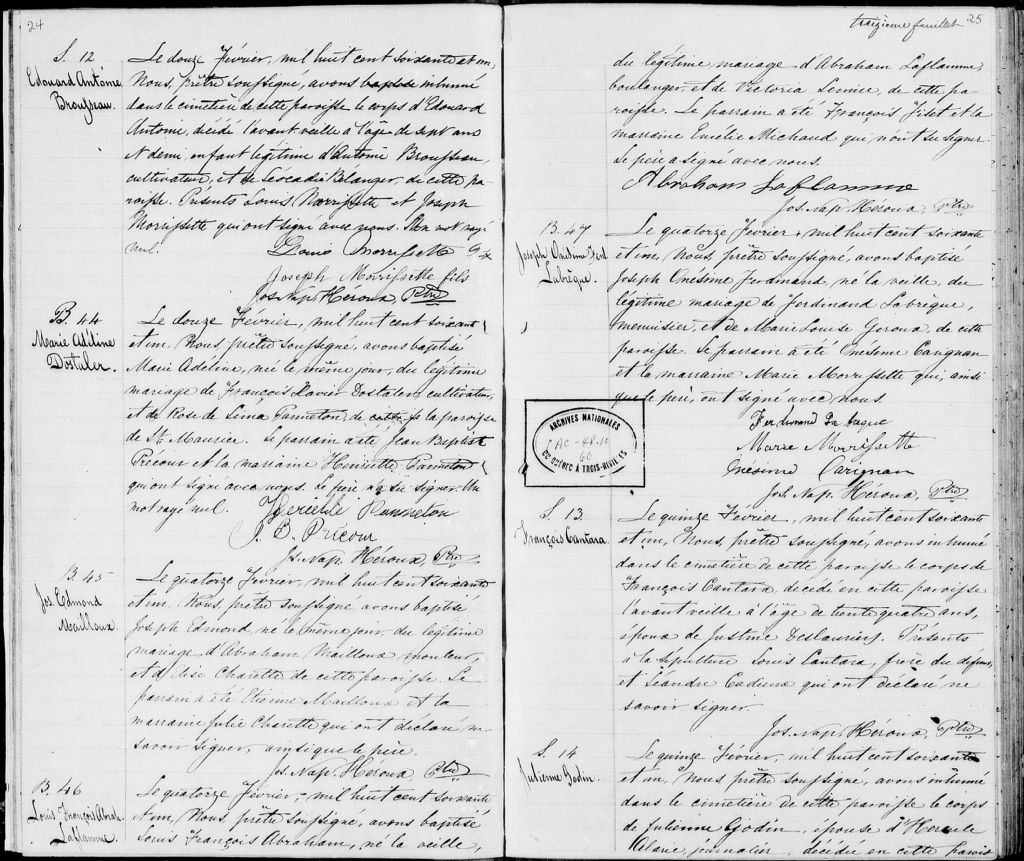 24
S. 12
Edouard Antoine
Brousseau.
Le douze Février, mil huit cent soixante et un,
Nous, prêtre soussigné, avons baptisé inhumé
dans le cimetière de cette paroisse le corps d'Edouard
Antoine, décédé l'avant-veille à l'âge de sept ans
et demi, enfant légitime d'Antoine Brousseau,
cultivateur, et de Léocadie Bélanger, de cette pa-
roisse. Présents Louis Morrissette et Joseph
Morrissette qui ont signé avec nous. Un mot rayé
nul.
Louis Morrissette
Joseph Morrissette fils
Jos. Nap. Héroux, Ptre
B. 44
Marie Adéline
Dostaler.
Le douze Février, mil huit cent soixante
et un, Nous, prêtre soussigné, avons baptisé
Marie Adéline, née le même jour, du légitime
mariage de François Xavier Dostaler, cultivateur,
et de Rose de Lima Panneton, de cette de la paroisse
de St. Maurice. Le parrain a été Jean Baptiste
Précour et la marraine Henriette Panneton
qui ont signé avec nous. Le père n'a su signer. Un
mot rayé nul.
Panneton
J. B. Précour
Js. Nap. Héroux, Ptre
B. 45
Jos. Edmond
Mailloux.
Le quatorze Février, mil huit cent soixante
et un, Nous, prêtre soussigné, avons baptisé
Joseph Edmond, né le même jour, du légitime
mariage d'Abraham Mailloux mouleur,
et d'Elise Charette de cette paroisse. Le
parrain a été Etienne Mailloux et la
marraine Julie Charette qui ont déclaré ne
savoir signer, ainsi que le père.
Js. Nap. Héroux, Ptre
B. 46
Louis François Abrah.
Laflamme.
Le quatorze Février, mil huit cent soixante
et un, Nous, prêtre soussigné, avons baptisé
Louis François Abraham, né la veille,
treizième feuillet 25
du légitime mariage d'Abraham Laflamme,
boulanger, et de Victoria Lemise, de cette pa-
roisse. Le parrain a été François Fiset et la
marraine Emélie Michaud qui n'ont su signer.
Le père a signé avec nous.
Abraham Laflamme
Jos. Nap. Héroux, Ptre
B. 47
Joseph Onésime Ferd.
Labrèque.
Le quatorze Février, mil huit cent soixante
et un, Nous, prêtre soussigné, avons baptisé
Joseph Onésime Ferdinand né la veille, du
légitime mariage de Ferdinand Labrèque,
menuisier, et de Marie Louise Giroux, de cette
paroisse. Le parrain a été Onésime Carignan
et la marraine Marie Morrissette qui, ainsi
que le père, ont signé avec nous.
Ferdinand La breque
Marie Morrissette
Onésime Carignan
Jos. Nap. Héroux, Ptre
ARCHIVES NATIONALES
AC-48.10
60
DU QUÉBEC À TROIS-RIVIÈRES
S. 13.
François Cantara.
Le quinze Février, mil huit cent soixante
et un, Nous, prêtre soussigné, avons inhumé
dans le cimetière de cette paroisse le corps de
François Cantara décédé en cette paroisse
l'avant veille à l'âge de trente quatre ans,
époux de Justine Deslauriers. Présents
à la sépulture Louis Cantara, frère du défunt,
et Léandre Cadieux qui ont déclaré ne
savoir signer.
Jos. Nap. Héroux, Ptre
S. 14
Julienne Godin.
Le quinze Février, mil huit cent soixante
et un, Nous, prêtre soussigné, avons inhumé
dans le cimetière de cette paroisse le corps
de Julienne Godin, épouse d'Hercule
Alarie, journalier, décédée en cette parois